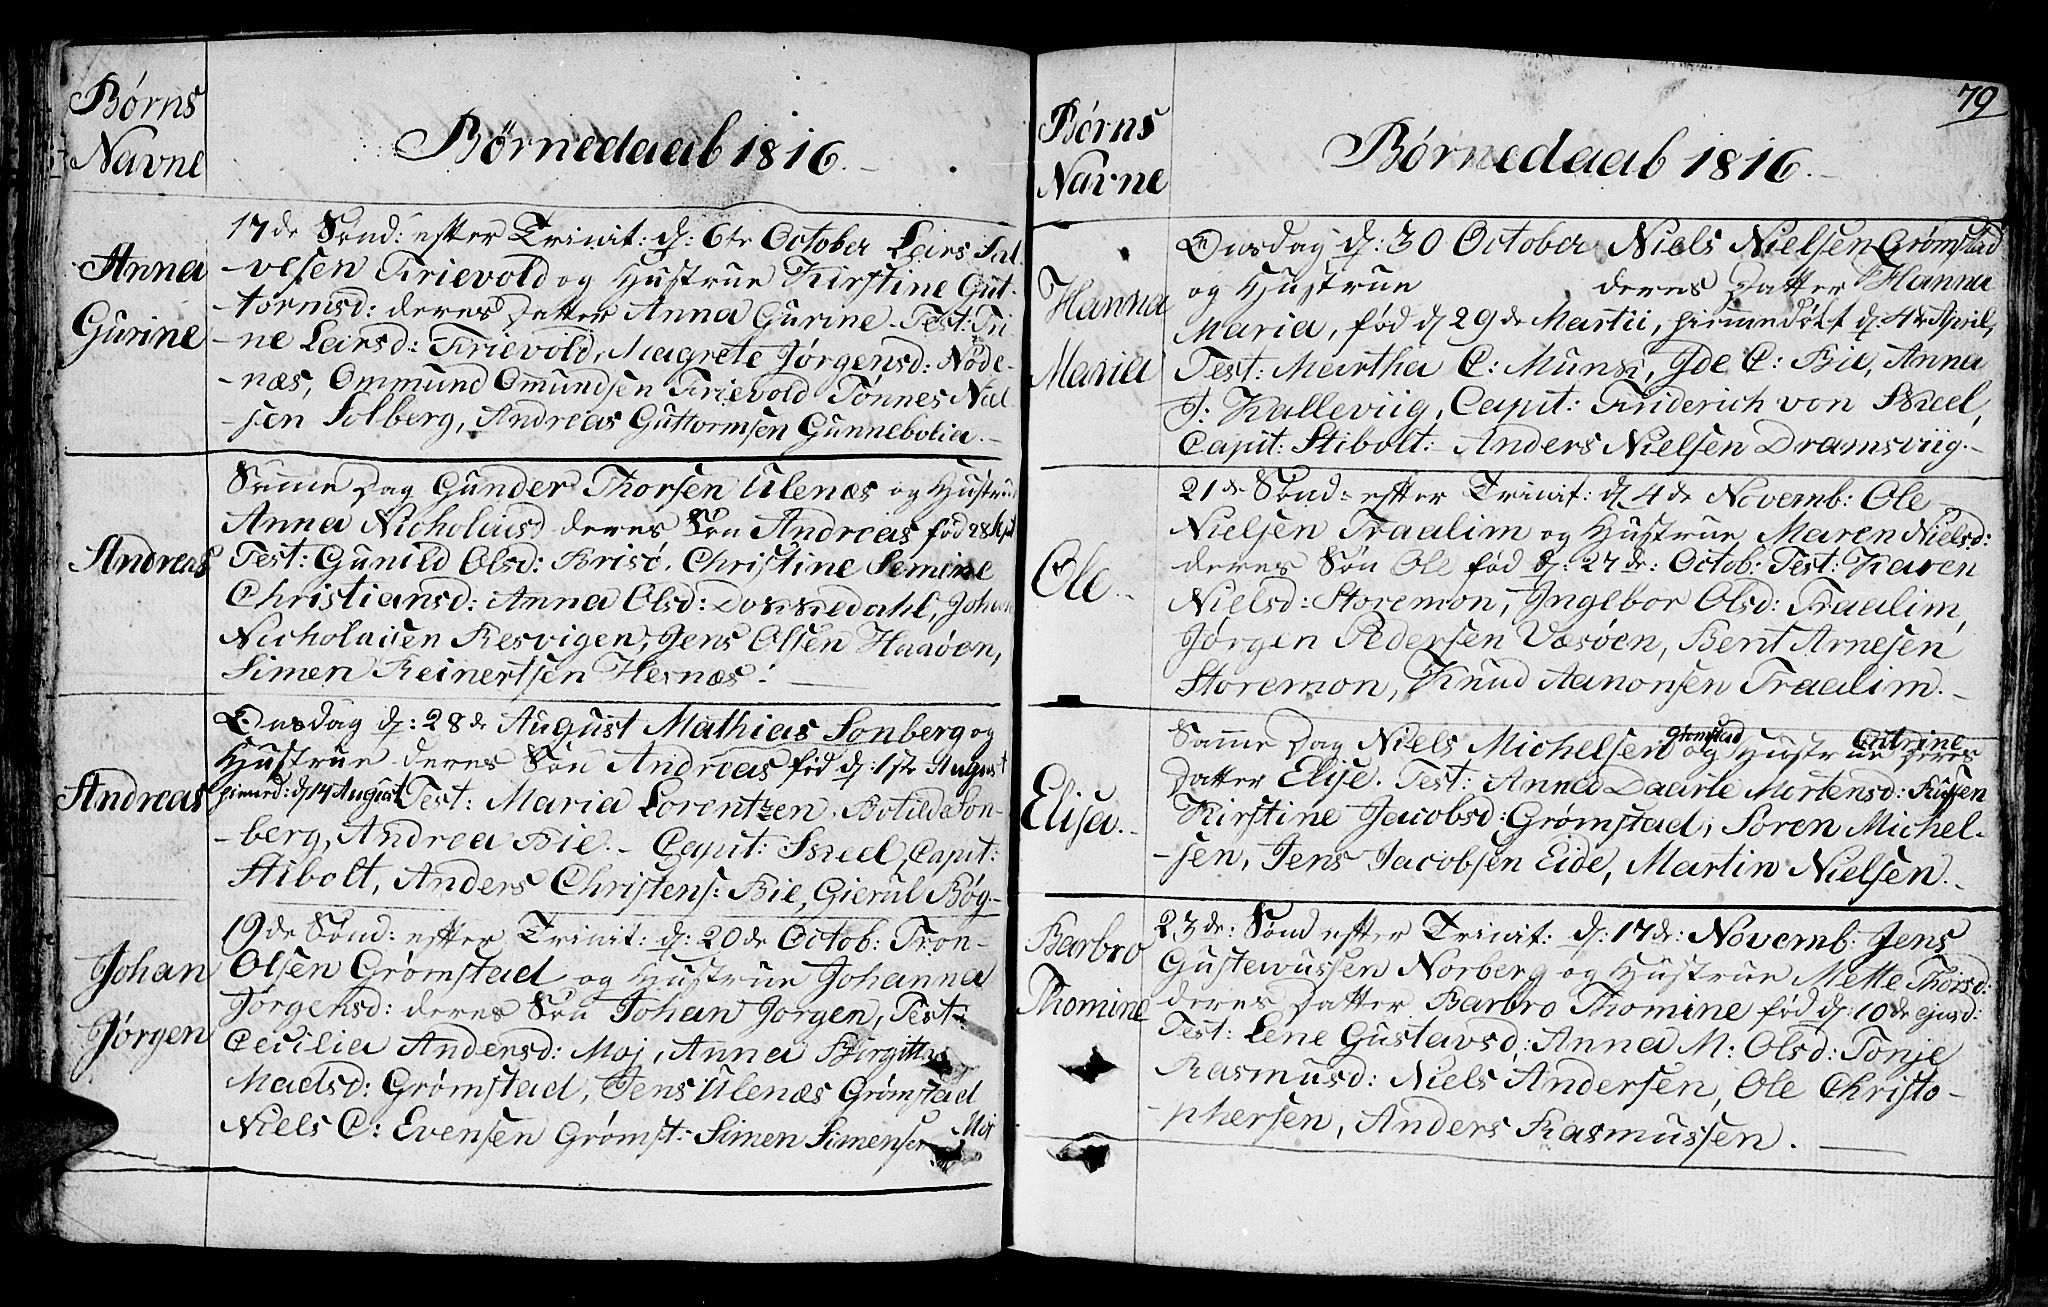 Børns
Navne
Børnedaab 1816.
Anna
Gurine
17de Sønd: efter Trinit: d: 6te October Leirs Sal-
-vesen Frievold og Hustrue Kirstine Gut-
-tormsd: deres Datter Anna Gurine. Test: Tri-
-ne Leirsd: Frievold, Magrete Jørgensd: Nøde-
-næs, Ommund Omundsen Frievold Tønnes Niel-
-sen Solberg, Andreas Guttormsen Gunnebolia.-
Andreas
Samme Dag Gunder Thorsen Ulenæs og Hustrue
Anna Nicholaisd deres Søn Andreas fød 28
Test: Gunild Olsd: Brisö. Christine Semine
Christiansd: Anna Olsd: Dokkedahl, Johan
Nicholaisen Resvigen, Jens Olsen Haaøen,
Simen Reinertsen Hesnæs.
Andreas
Onsdag d: 28de August Mathias Sonberg og
Hustrue deres Søn Andreas fød d: 1ste August
hiemed: d 14 August Test: Maria Lorentzen. Botilde Son-
-berg, Andrea Bie.- Capit: Skeel, Capit:
Stibolt, Anders Christens: Bie, Gierul Bøg-
Johan
Jørgen
19de Sønd: efter Trinit: d: 20de Octob: Tron-
Olsen Grømstad og Hustrue Johanna
Jørgensd: deres Søn Johan Jørgen, Test:
Cecilia Andersd: Moj, Anna Birgitta
Madsd: Grømstad, Jens Ulenæs Grømstad
Niels C: Evensen Grømst: Simen Simensen Moi
79
Børns
Navne
Børnedaab 1816.
Hanna
Maria
Onsdag d: 30 October Niels Nielsen Grømstad
og Hustrue deres Datter Hanna
Maria, fød d 29de Martii, hiemmedøbt d: 4de April,
Test: Martha C: Munk, Gde C: Bie, Anna
J: Kalleviig, Capit: Friderich von Skeel,
Capit: Stibolt:- Anders Nielsen Dramsviig.-
Ole
21de Sønd: efter Trinit: d 4de Novemb: Ole
Nielsen Traalim og Hustrue Maren Nielsd:
deres Søn Ole fød d: 27de: Octob: Test: Karen
Nielsd: Storemon, Ingebor Olsd: Traalim,
Jørgen Pedersen Væsøen, Bent Arnesen
Storemon, Knud Aanonsen Traalim.-
Elisa
Samme Dag Niels Michelsen Grømstad og Hustrue Catrine deres
Datter Elise. Test: Anna Daarle Mortensd:
Kirstine Jacobsd: Grømstad, Søren Michel-
-sen, Jens Jacobsen Eide, Martin Nielsen.-
Barbro
Thomine
23de: Sønd efter Trinit: d: 17de: Novemb: Jens
Gustavussen Norberg og Hustrue Mette Thorsd:
deres Datter Barbro Thomine fød d: 10de ejusd:
Test: Lene Gustavsd: Anna M: Olsd: Tonje
Rasmusd: Niels Andersen, Ole Christo-
-phersen, Anders Rasmussen.